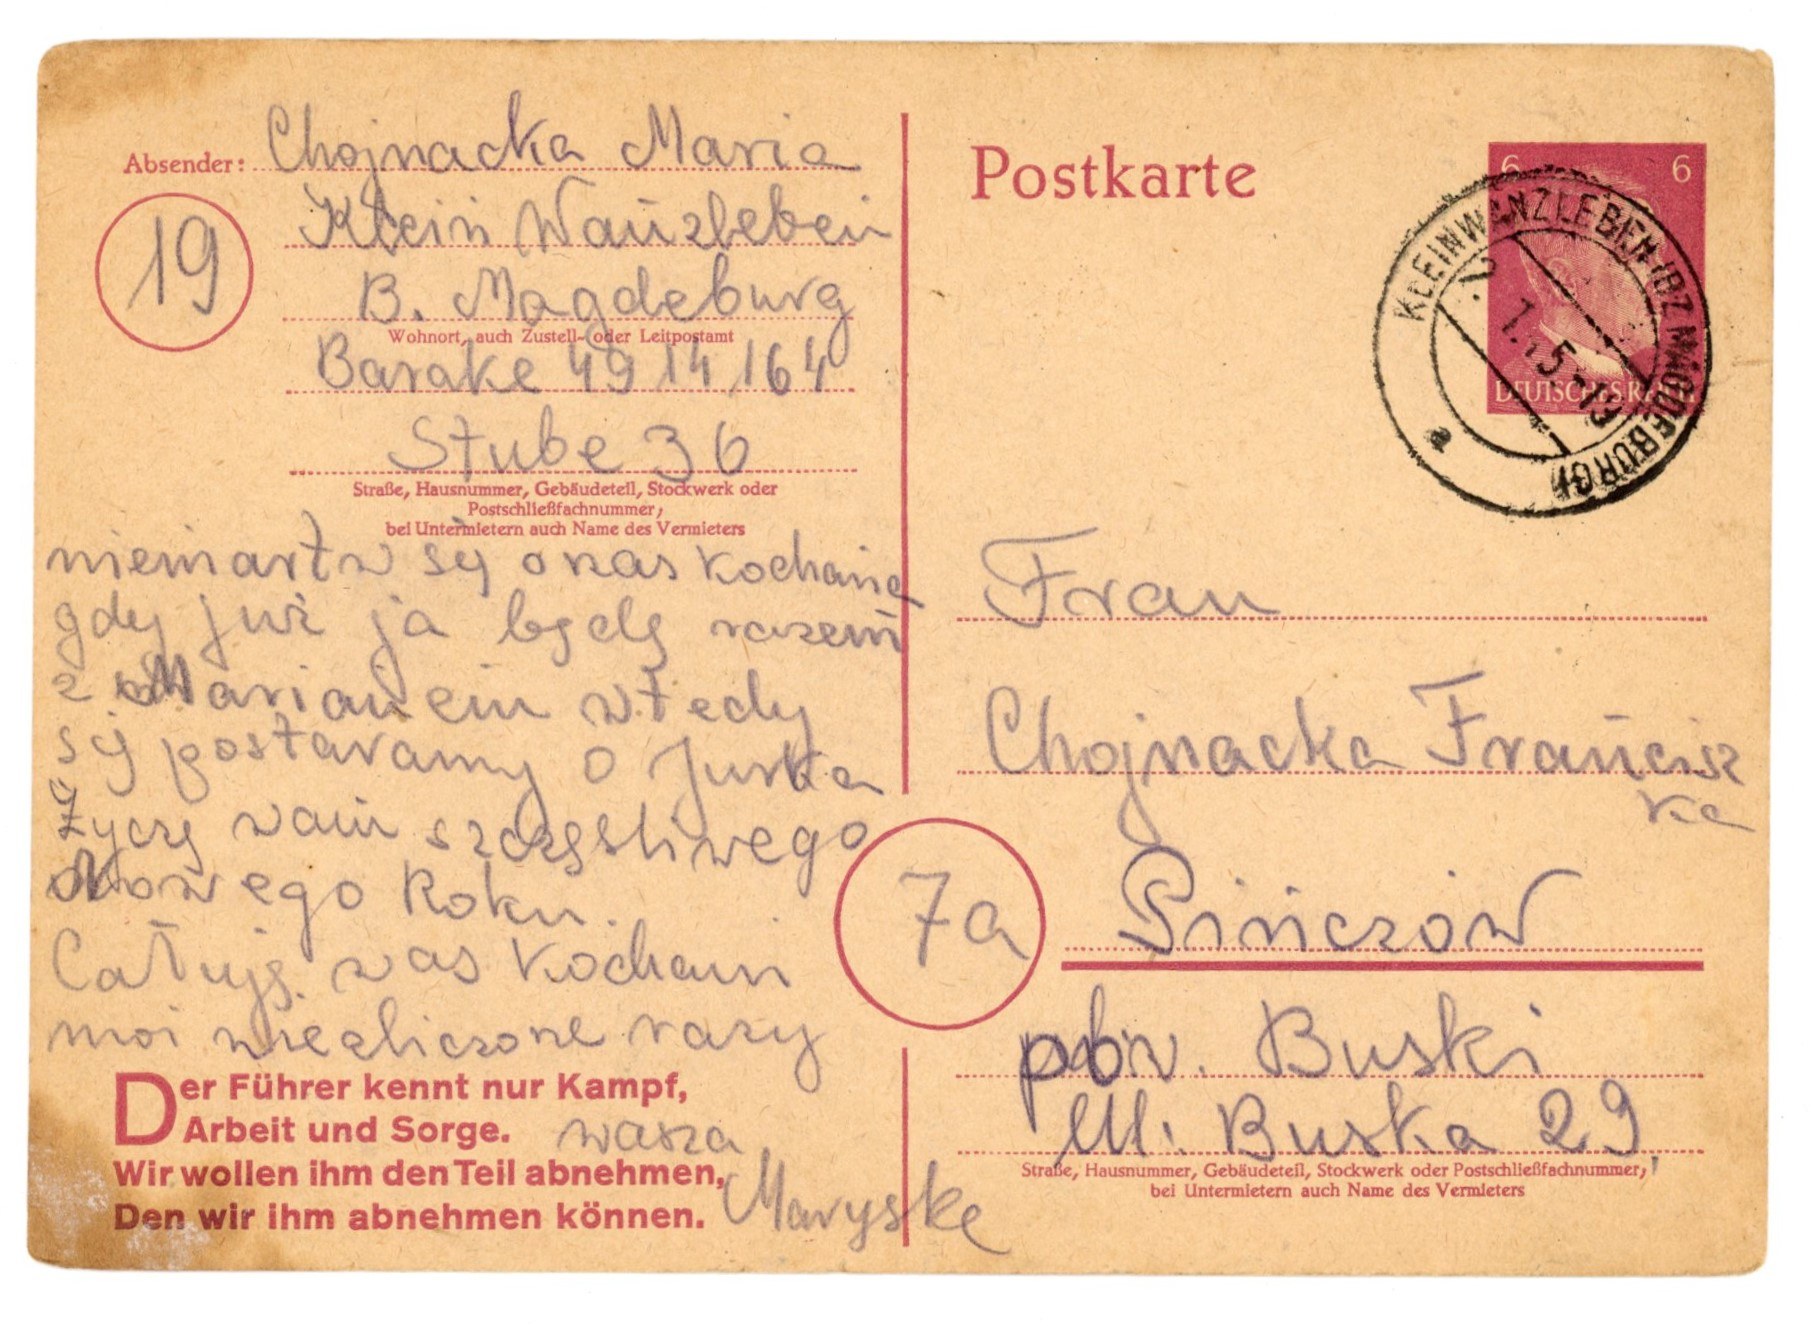 Absender: Chojnacka Maria
19
Klein Wanzleben
B. Magdeburg
Wohnort, auch Zustell- oder Leitpostamt
Barake 49 14 164
Stube 36
Straße, Hausnummer, Gebäudeteil, Stockwerk oder
Postschließfachnummer;
bei Untermietern auch Name des Vermieters
niemartw się o nas kochana
gdy już ja będę razem
z Marianem wtedy
się postaramy o Jurka
Życzę wam szczęsliwego
Nowego Roku.
Całuję was kochani
moi niezliczone razy
Der Führer kennt nur Kampf,
Arbeit und Sorge.
wasza
Wir wollen ihm den Teil abnehmen,
Den wir ihm abnehmen können.
Maryske
Postkarte
6 6
DEUTSCHES REICH
KLEINWANZLEBEN (BZ MAGDEBURG)
a
Frau
Chojnacka Francisz
ka
7a
Pinczów
pow. Buski
Ul. Buska 29,
Straße, Hausnummer, Gebäudeteil, Stockwerk oder Postschließfachnummer;
bei Untermietern auch Name des Vermieters